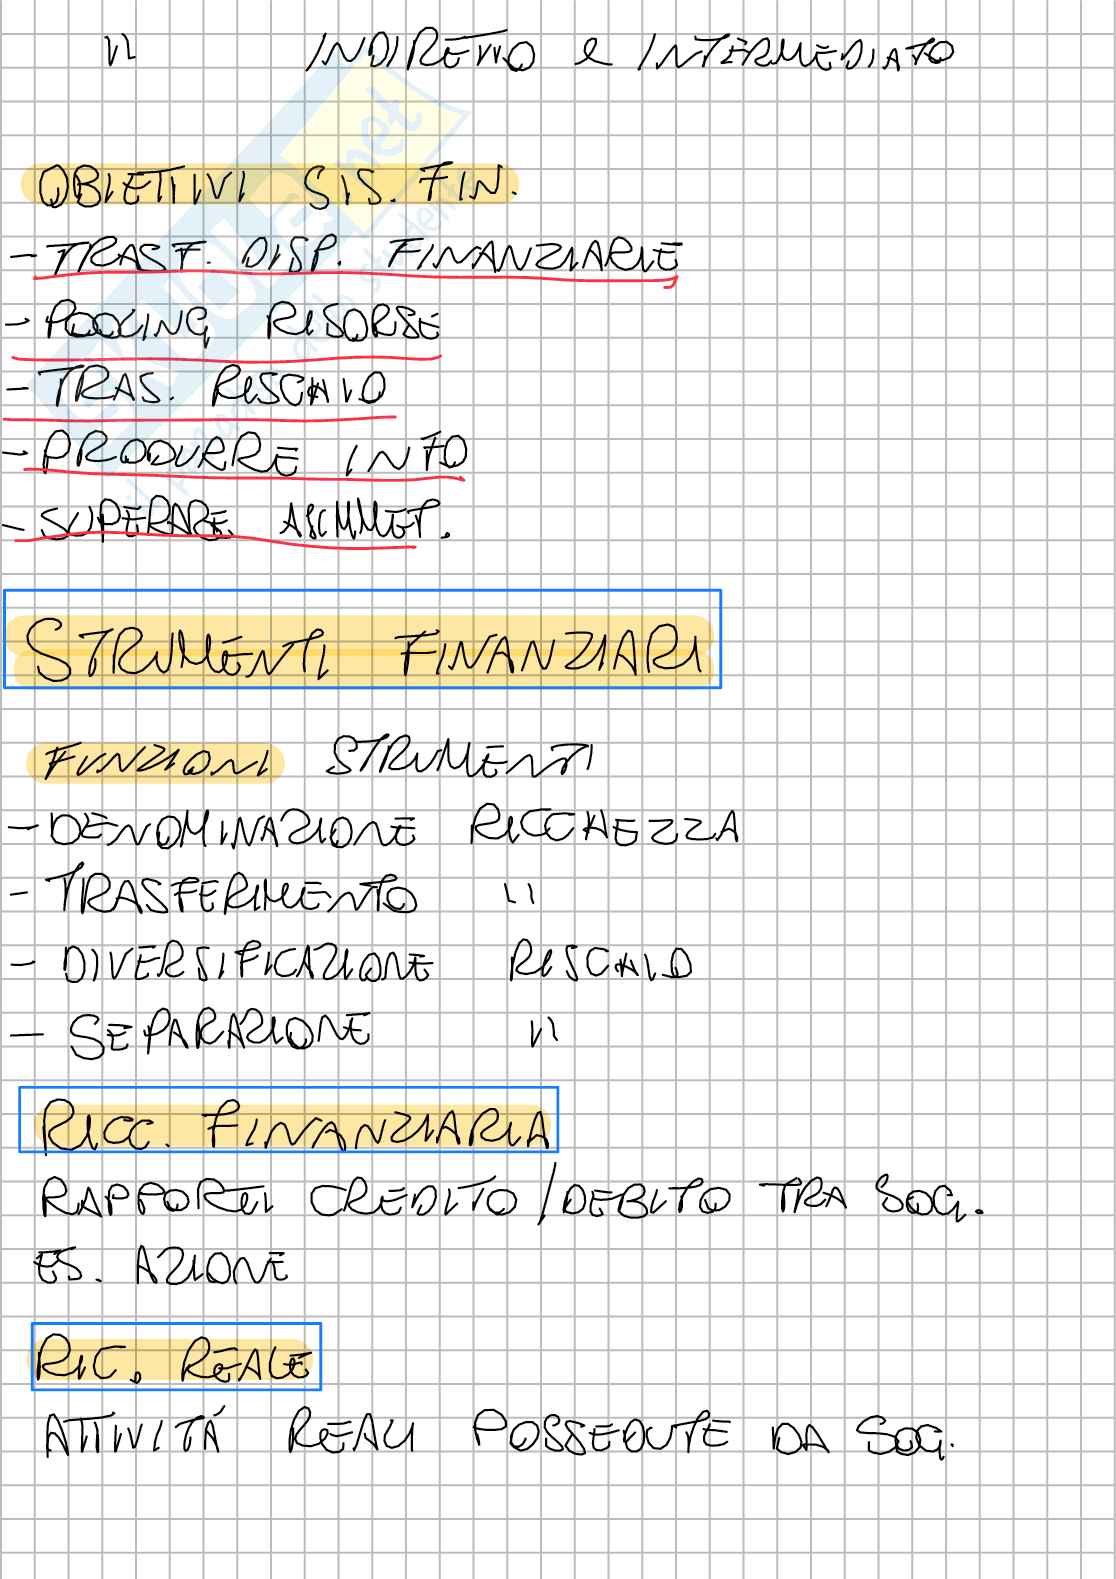 " INDIRETTO e INTERMEDIATO
OBIETTIVI SIS. FIN.
- TRASF. DISP. FINANZIARIE
- POOLING RISORSE
- TRAS. RISCHIO
- PRODURRE INFO
- SUPERARE ASIMMET.
STRUMENTI FINANZIARI
FUNZIONI STRUMENTI
- DENOMINAZIONE RICCHEZZA
- TRASFERIMENTO "
- DIVERSIFICAZIONE RISCHIO
- SEPARAZIONE "
RICC. FINANZIARIA
RAPPORTI CREDITO/DEBITO TRA SOG.
ES. AZIONE
RIC. REALE
ATTIVITÁ REALI POSSEDUTE DA SOG.